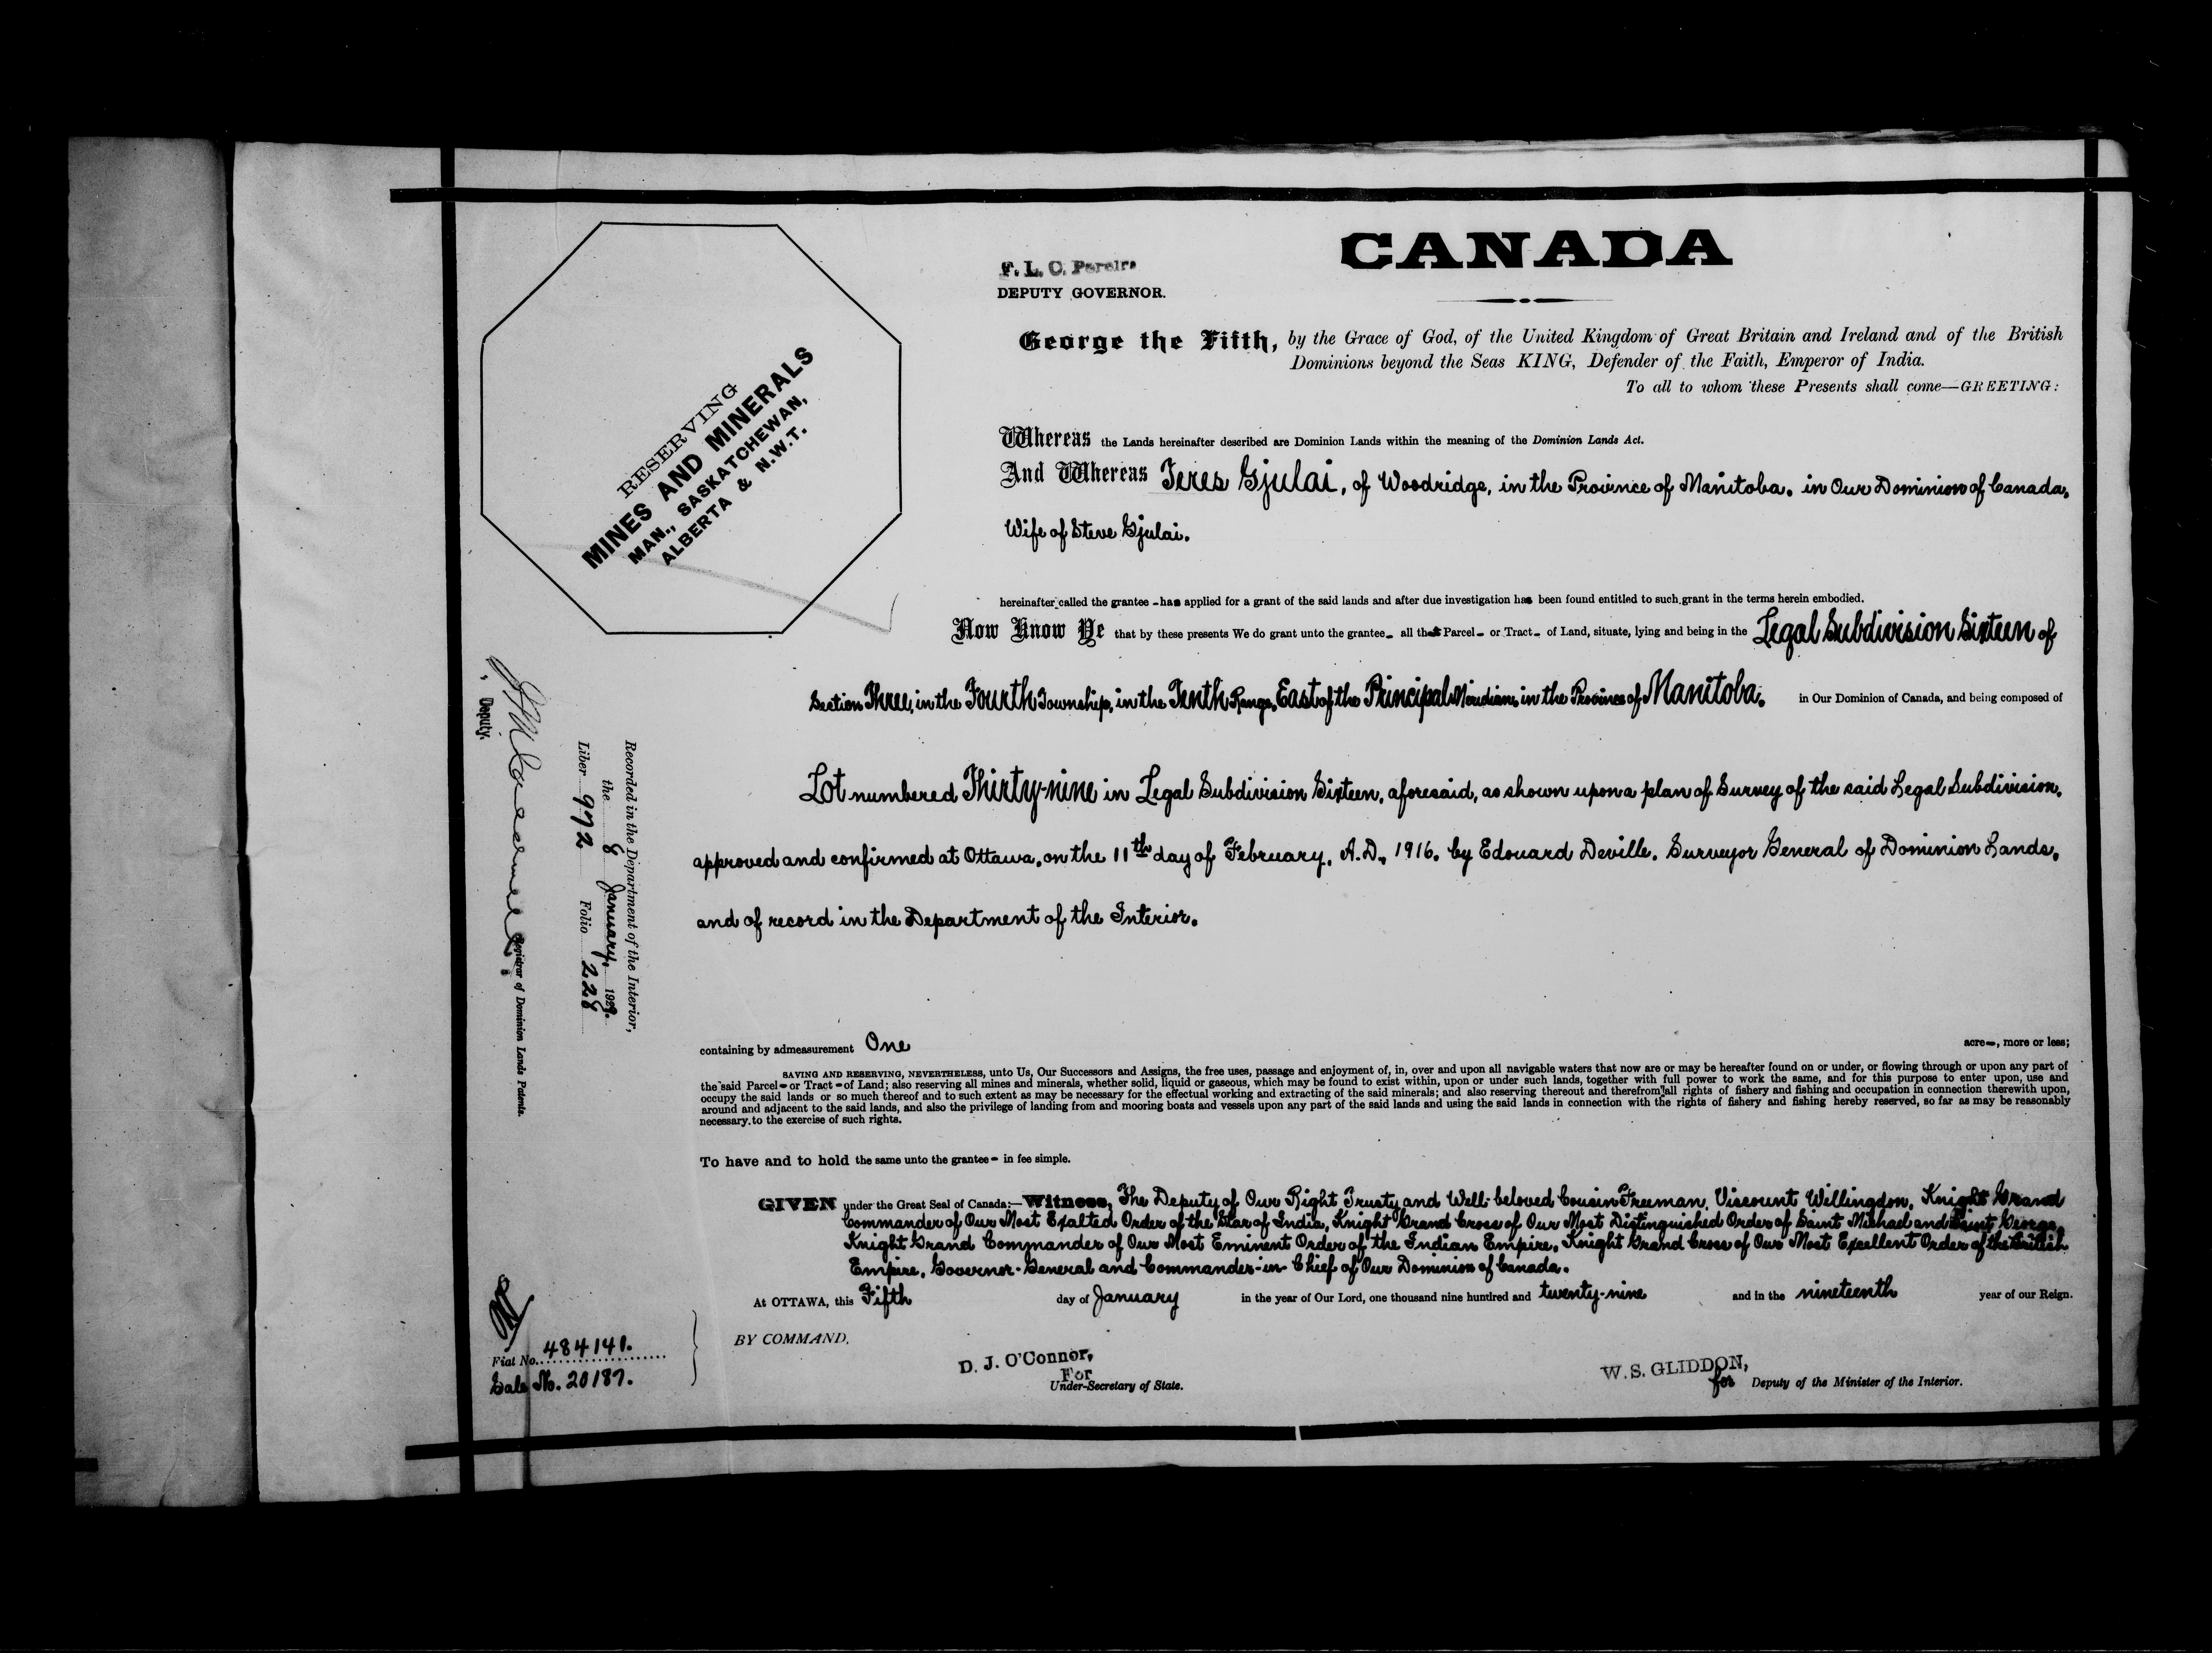 CANADA
F. L. C. Pereira
DEPUTY GOVERNOR.
George the Fifth, by the Grace of God, of the United Kingdom of Great Britain and Ireland and of the British
Dominions beyond the Seas KING, Defender of the Faith, Emperor of India.
To all to whom these Presents shall come—GREETING:
RESERVING
MINES AND MINERALS
MAN., SASKATCHEWAN,
ALBERTA & N.W.T.
Whereas the Lands hereinafter described are Dominion Lands within the meaning of the Dominion Lands Act.
And Whereas Teres Gjulai, of Woodridge, in the Province of Manitoba, in Our Dominion of Canada,
Wife of Steve Gjulai.
hereinafter called the grantee - has applied for a grant of the said lands and after due investigation has been found entitled to such grant in the terms herein embodied.
Now Know Ye that by these presents We do grant unto the grantee - all that Parcel - or Tract - of Land, situate, lying and being in the Legal Subdivision Sixteen of
Section Three, in the Fourth Township, in the Tenth Range, East of the Principal Meridian, in the Province of Manitoba, in Our Dominion of Canada, and being composed of
Lot numbered Thirty-nine in Legal Subdivision Sixteen, aforesaid, as shown upon a plan of Survey of the said Legal Subdivision,
approved and confirmed at Ottawa, on the 11th day of February, A.D., 1916, by Edouard Deville, Surveyor General of Dominion Lands,
and of record in the Department of the Interior.
containing by admeasurement One acre -, more or less;
SAVING AND RESERVING, NEVERTHELESS, unto Us, Our Successors and Assigns, the free uses, passage and enjoyment of, in, over and upon all navigable waters that now are or may be hereafter found on or under, or flowing through or upon any part of
the said Parcel - or Tract - of Land; also reserving all mines and minerals, whether solid, liquid or gaseous, which may be found to exist within, upon or under such lands, together with full power to work the same, and for this purpose to enter upon, use and
occupy the said lands or so much thereof and to such extent as may be necessary for the effectual working and extracting of the said minerals; and also reserving thereout and therefrom all rights of fishery and fishing and occupation in connection therewith upon,
around and adjacent to the said lands, and also the privilege of landing from and mooring boats and vessels upon any part of the said lands and using the said lands in connection with the rights of fishery and fishing hereby reserved, so far as may be reasonably
necessary to the exercise of such rights.
To have and to hold the same unto the grantee - in fee simple.
GIVEN under the Great Seal of Canada:—Witness, The Deputy of Our Right Trusty and Well-beloved Cousin Freeman, Viscount Willingdon, Knight Grand
Commander of Our Most Exalted Order of the Star of India, Knight Grand Cross of Our Most Distinguished Order of Saint Michael and Saint George,
Knight Grand Commander of Our Most Eminent Order of the Indian Empire, Knight Grand Cross of Our Most Excellent Order of the British
Empire, Governor-General and Commander-in-Chief of Our Dominion of Canada.
At OTTAWA, this Fifth day of January in the year of Our Lord, one thousand nine hundred and twenty-nine and in the nineteenth year of our Reign.
BY COMMAND,
D. J. O'Connor,
For
Under-Secretary of State.
W. S. GLIDDON,
for Deputy of the Minister of the Interior.
Recorded in the Department of the Interior,
the 8 January, 1929.
Liber 972 Folio 228
Deputy. Registrar of Dominion Lands Patents.
Fiat No. 484141.
Sale No. 20187.